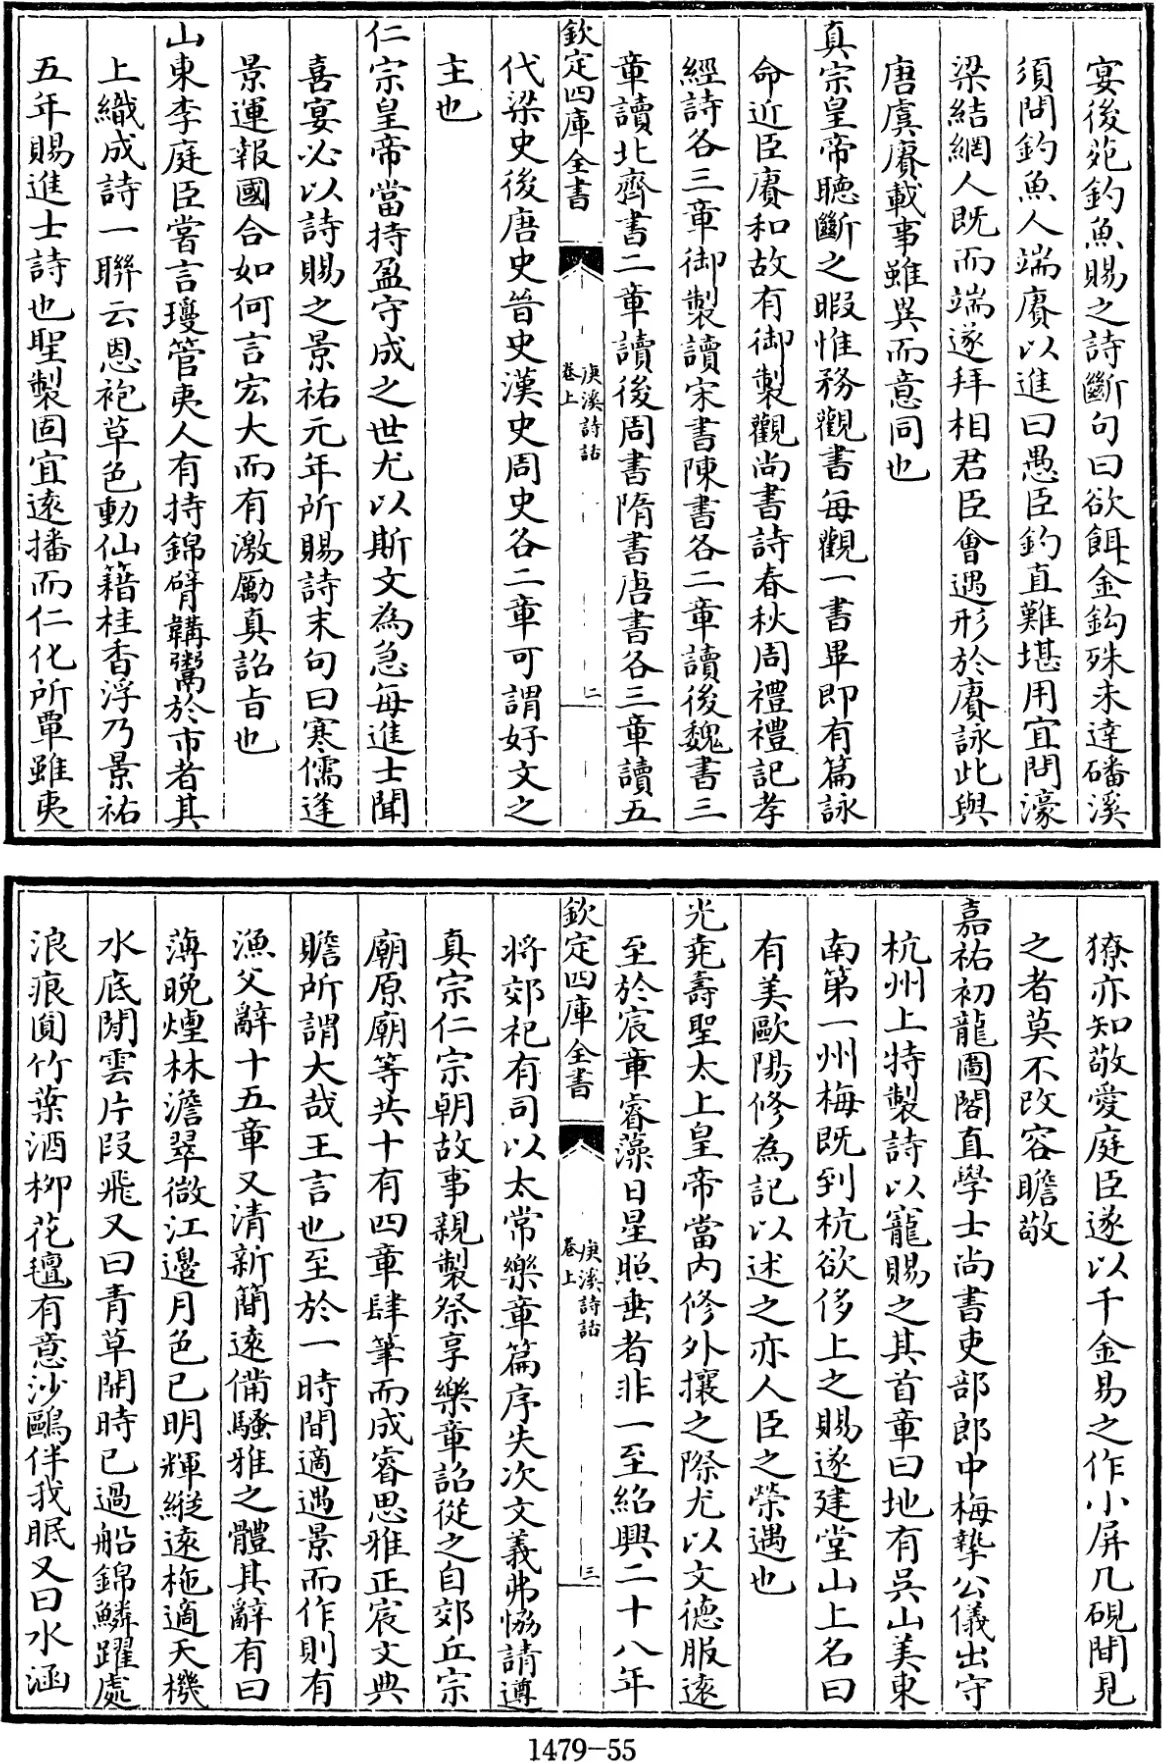 宴後苑釣魚賜之詩斷句曰欲餌金鈎殊未達磻溪
須問釣魚人端賡以進曰愚臣釣直難堪用宜問濠
梁結網人既而端遂拜相君臣會遇形於賡詠此與
唐虞賡載事雖異而意同也
真宗皇帝聽斷之暇惟務觀書每觀一書畢即有篇詠
命近臣賡和故有御製觀尚書詩春秋周禮禮記孝
經詩各三章御製讀宋書陳書各二章讀後魏書三
章讀北齊書二章讀後周書隋書唐書各三章讀五
欽定四庫全書
庚溪詩話
卷上
二
代梁史後唐史晉史漢史周史各二章可謂好文之
主也
仁宗皇帝當持盈守成之世尤以斯文為急每進士聞
喜宴必以詩賜之景祐元年所賜詩末句曰寒儒逢
景運報國合如何言宏大而有激厲真詔旨也
山東李庭臣嘗言瓊管夷人有持錦臂韝鬻於市者其
上織成詩一聯云恩袍草色動仙籍桂香浮乃景祐
五年賜進士詩也聖製固宜遠播而仁化所覃雖夷
獠亦知敬愛庭臣遂以千金易之作小屏几硯間見
之者莫不改容瞻敬
嘉祐初龍圖閣直學士尚書吏部郎中梅摯公儀出守
杭州上特製詩以寵賜之其首章曰地有吳山美東
南第一州梅既到杭欲侈上之賜遂建堂山上名曰
有美歐陽修為記以述之亦人臣之榮遇也
光堯壽聖太上皇帝當內修外攘之際尤以文德服遠
至於宸章睿藻日星照垂者非一至紹興二十八年
欽定四庫全書
庚溪詩話
卷上
三
將郊祀有司以太常樂章篇序失次文義弗協請遵
真宗仁宗朝故事親製祭享樂章詔從之自郊丘宗
廟原廟等共十有四章肆筆而成睿思雅正宸文典
贍所謂大哉王言也至於一時間適遇景而作則有
漁父辭十五章又清新簡遠備騷雅之體其辭有曰
薄晚煙林澹翠微江邊月色已明輝縱遠柂適天機
水底閒雲片段飛又曰青草開時已過船錦鱗躍處
浪痕圓竹葉酒柳花氊有意沙鷗伴我眠又曰水涵
1479-55